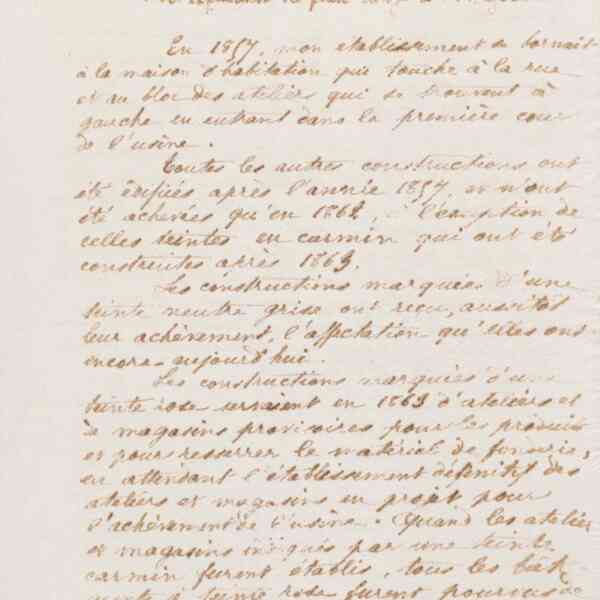 En 1857, mon établissement se bornait
à la maison d'habitation qui touche à la rue
et au bloc des ateliers qui se trouvent à
gauche en entrant dans la première cour
de l'usine.
Toutes les autres constructions ont
été érifiées après l'année 1857, et n'ont
été achevées qu'en 1862, à l'exception de
celles teintes en carmin qui ont été
construites après 1863.
Les constructions marquées d'une
teinte neutre grise ont reçu, aussitôt
leur achèvement, l'affectation qu'elles ont
encore aujourd'hui.
Les constructions marquées d'une
teinte rose servaient en 1863 d'ateliers et
de magasins provisoires pour les produits
et pour resserrer le matériel de fonderie,
en attendant l'établissement définitif des
ateliers et magasins en projet pour
l'achèvement de l'usine. Quand les atelier
et magasins indiqués par une teinte
carmin furent établis, tous les bati
teinte rose furent pourvus de